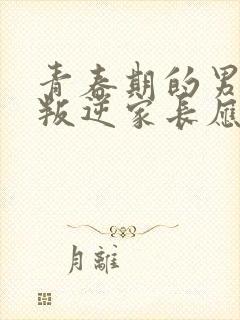 青春期的男
叛逆家长应
月離